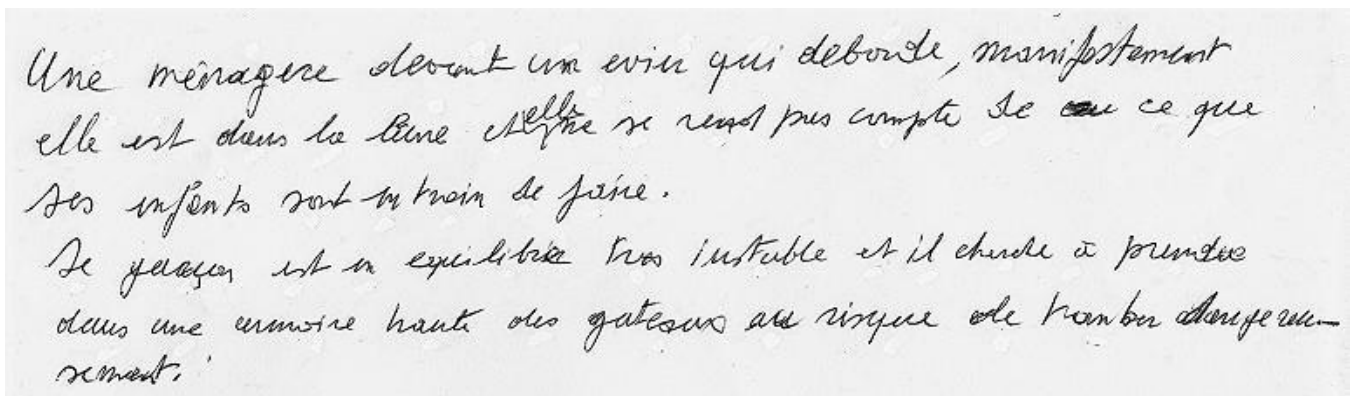 Une ménagère devant un evier qui deborde, manifestement
elle est dans la lune et elle ne se rend pas compte de ce que
ses enfants sont en train de faire.
Le garçon est en equilibre tres instable et il cherche à prendre
dans une armoire haute des gateaux au risque de tomber dangereu-
sement.